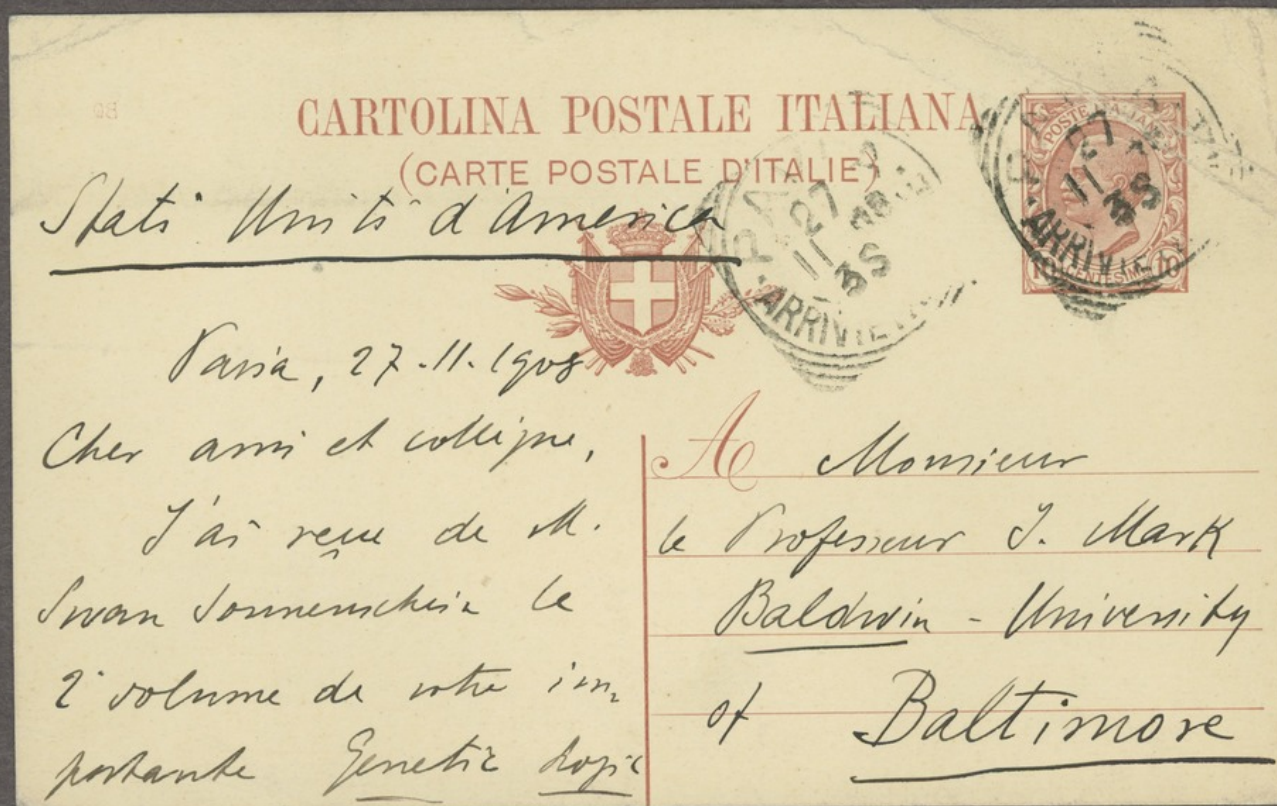 CARTOLINA POSTALE ITALIANA
(CARTE POSTALE D'ITALIE)
POSTE ITALIANE
10 CENTESIMI 10
PAVIA
27 11
3S
ARRIVI E
PAVIA
27 11
3S
ARRIVI E
Stati Uniti d'America
Pavia, 27-11-1908
Cher ami et collègue,
J'ai reçu de M.
Swan Sonnenschein le
2e volume de votre im-
portante Genetic Logic
A Monsieur
le Professeur J. Mark
Baldwin - University
of Baltimore